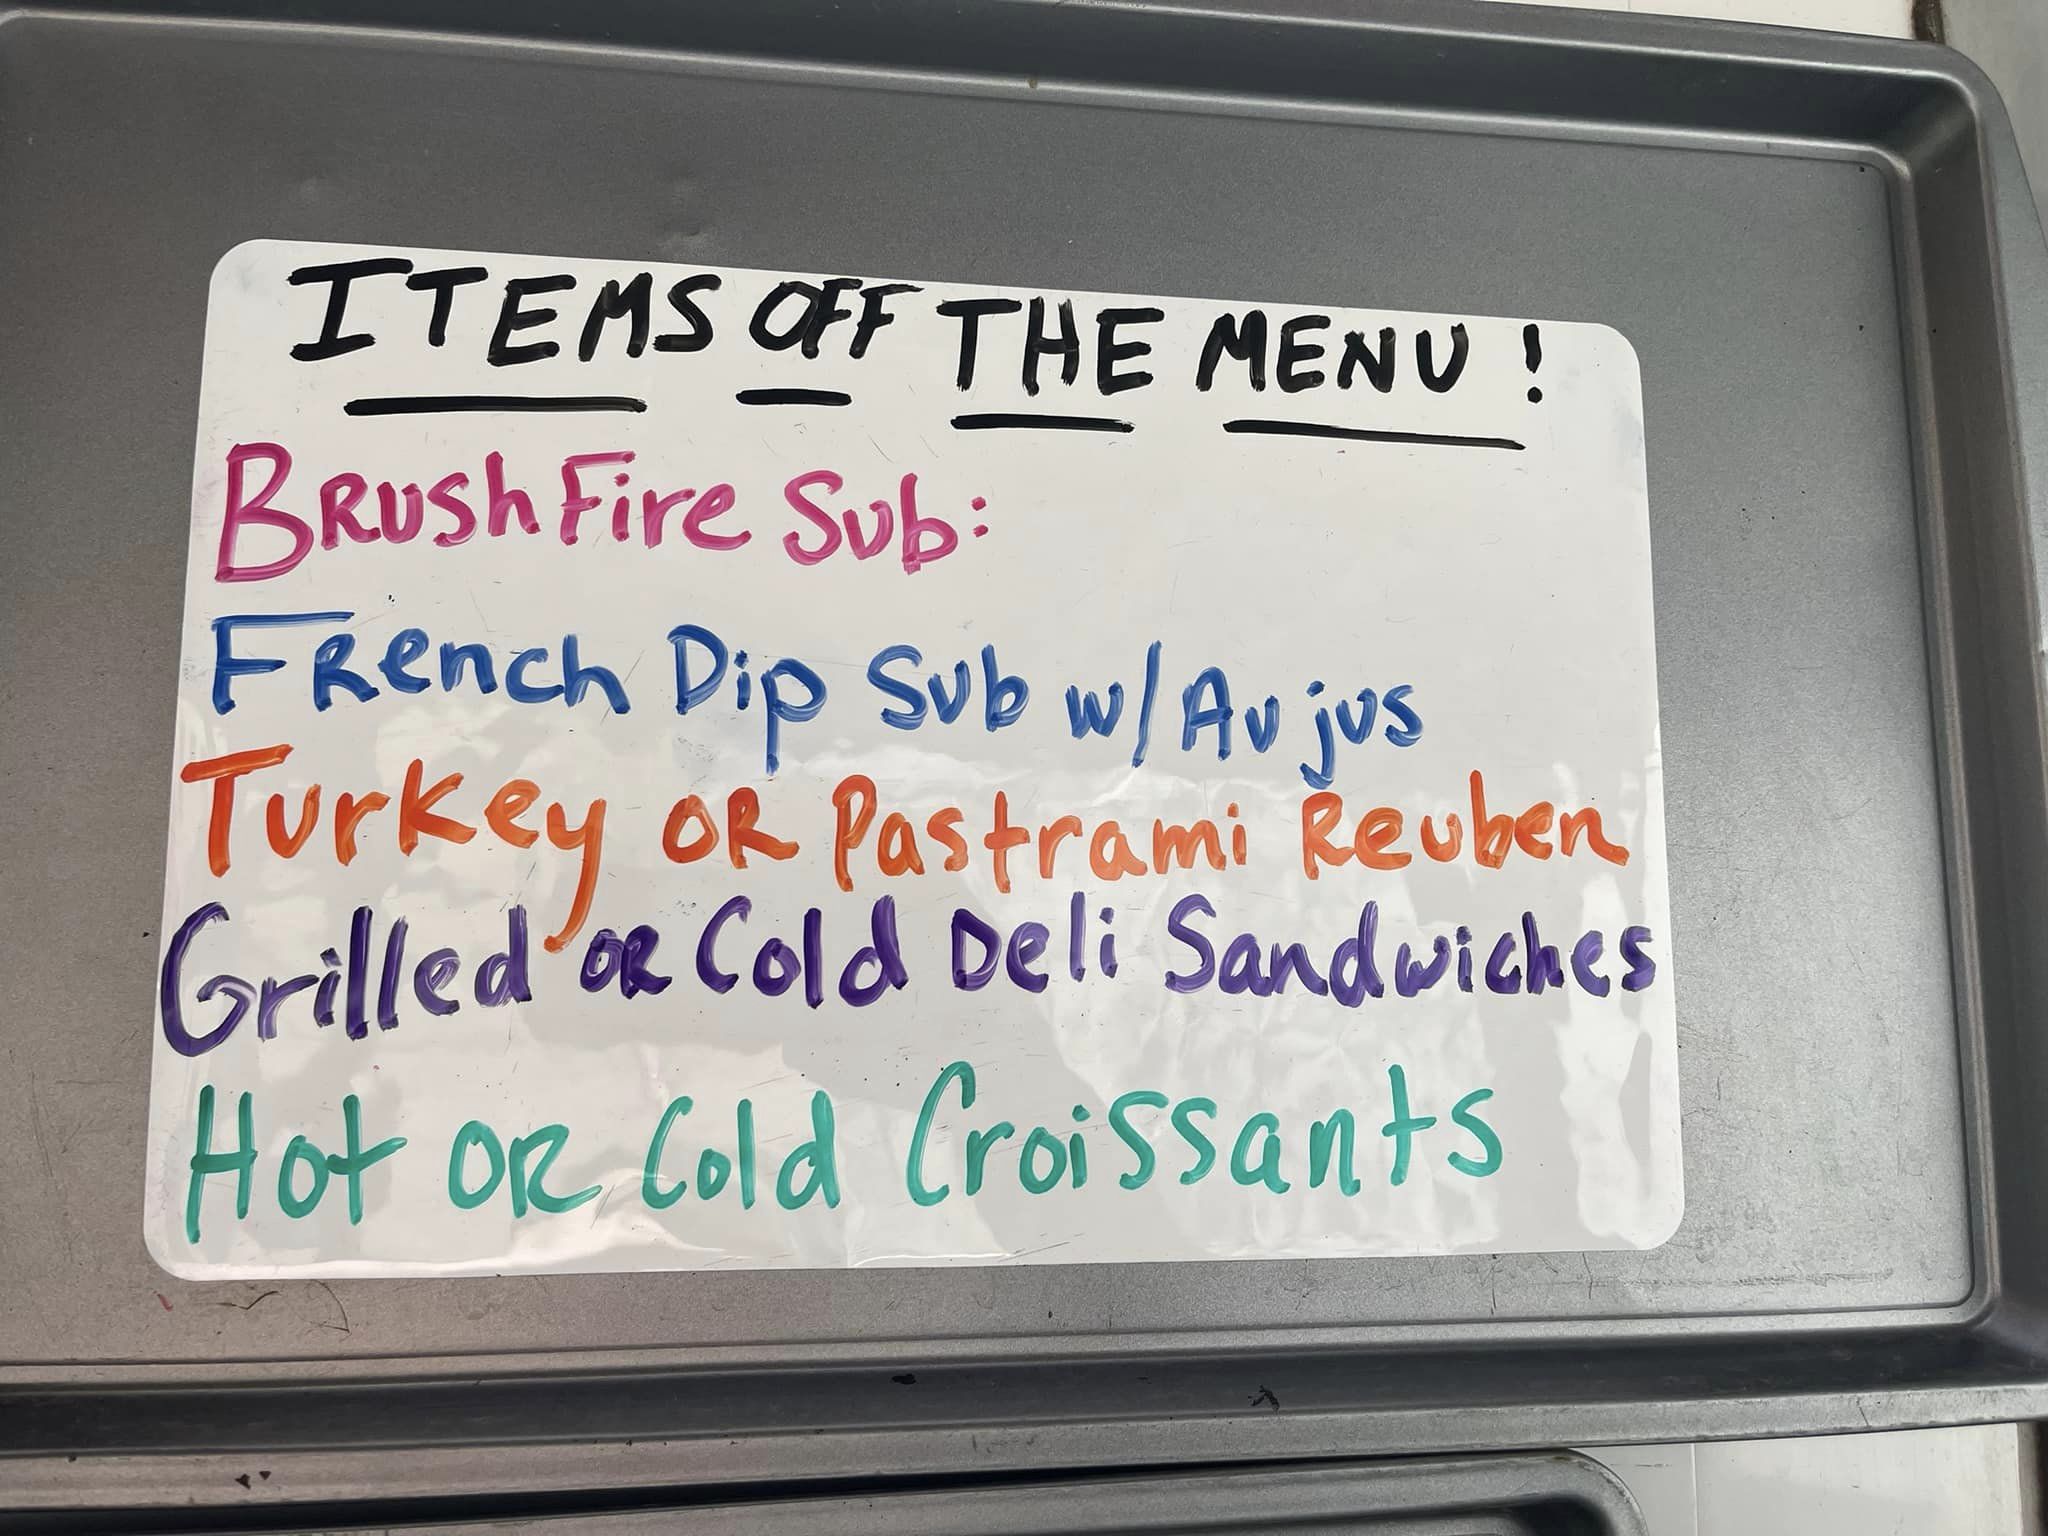 ITEMS OFF THE MENU!
BRUSHFire Sub:
FRench Dip Sub w/ Au jus
Turkey OR Pastrami Reuben
Grilled OR Cold Deli Sandwiches
Hot OR Cold Croissants